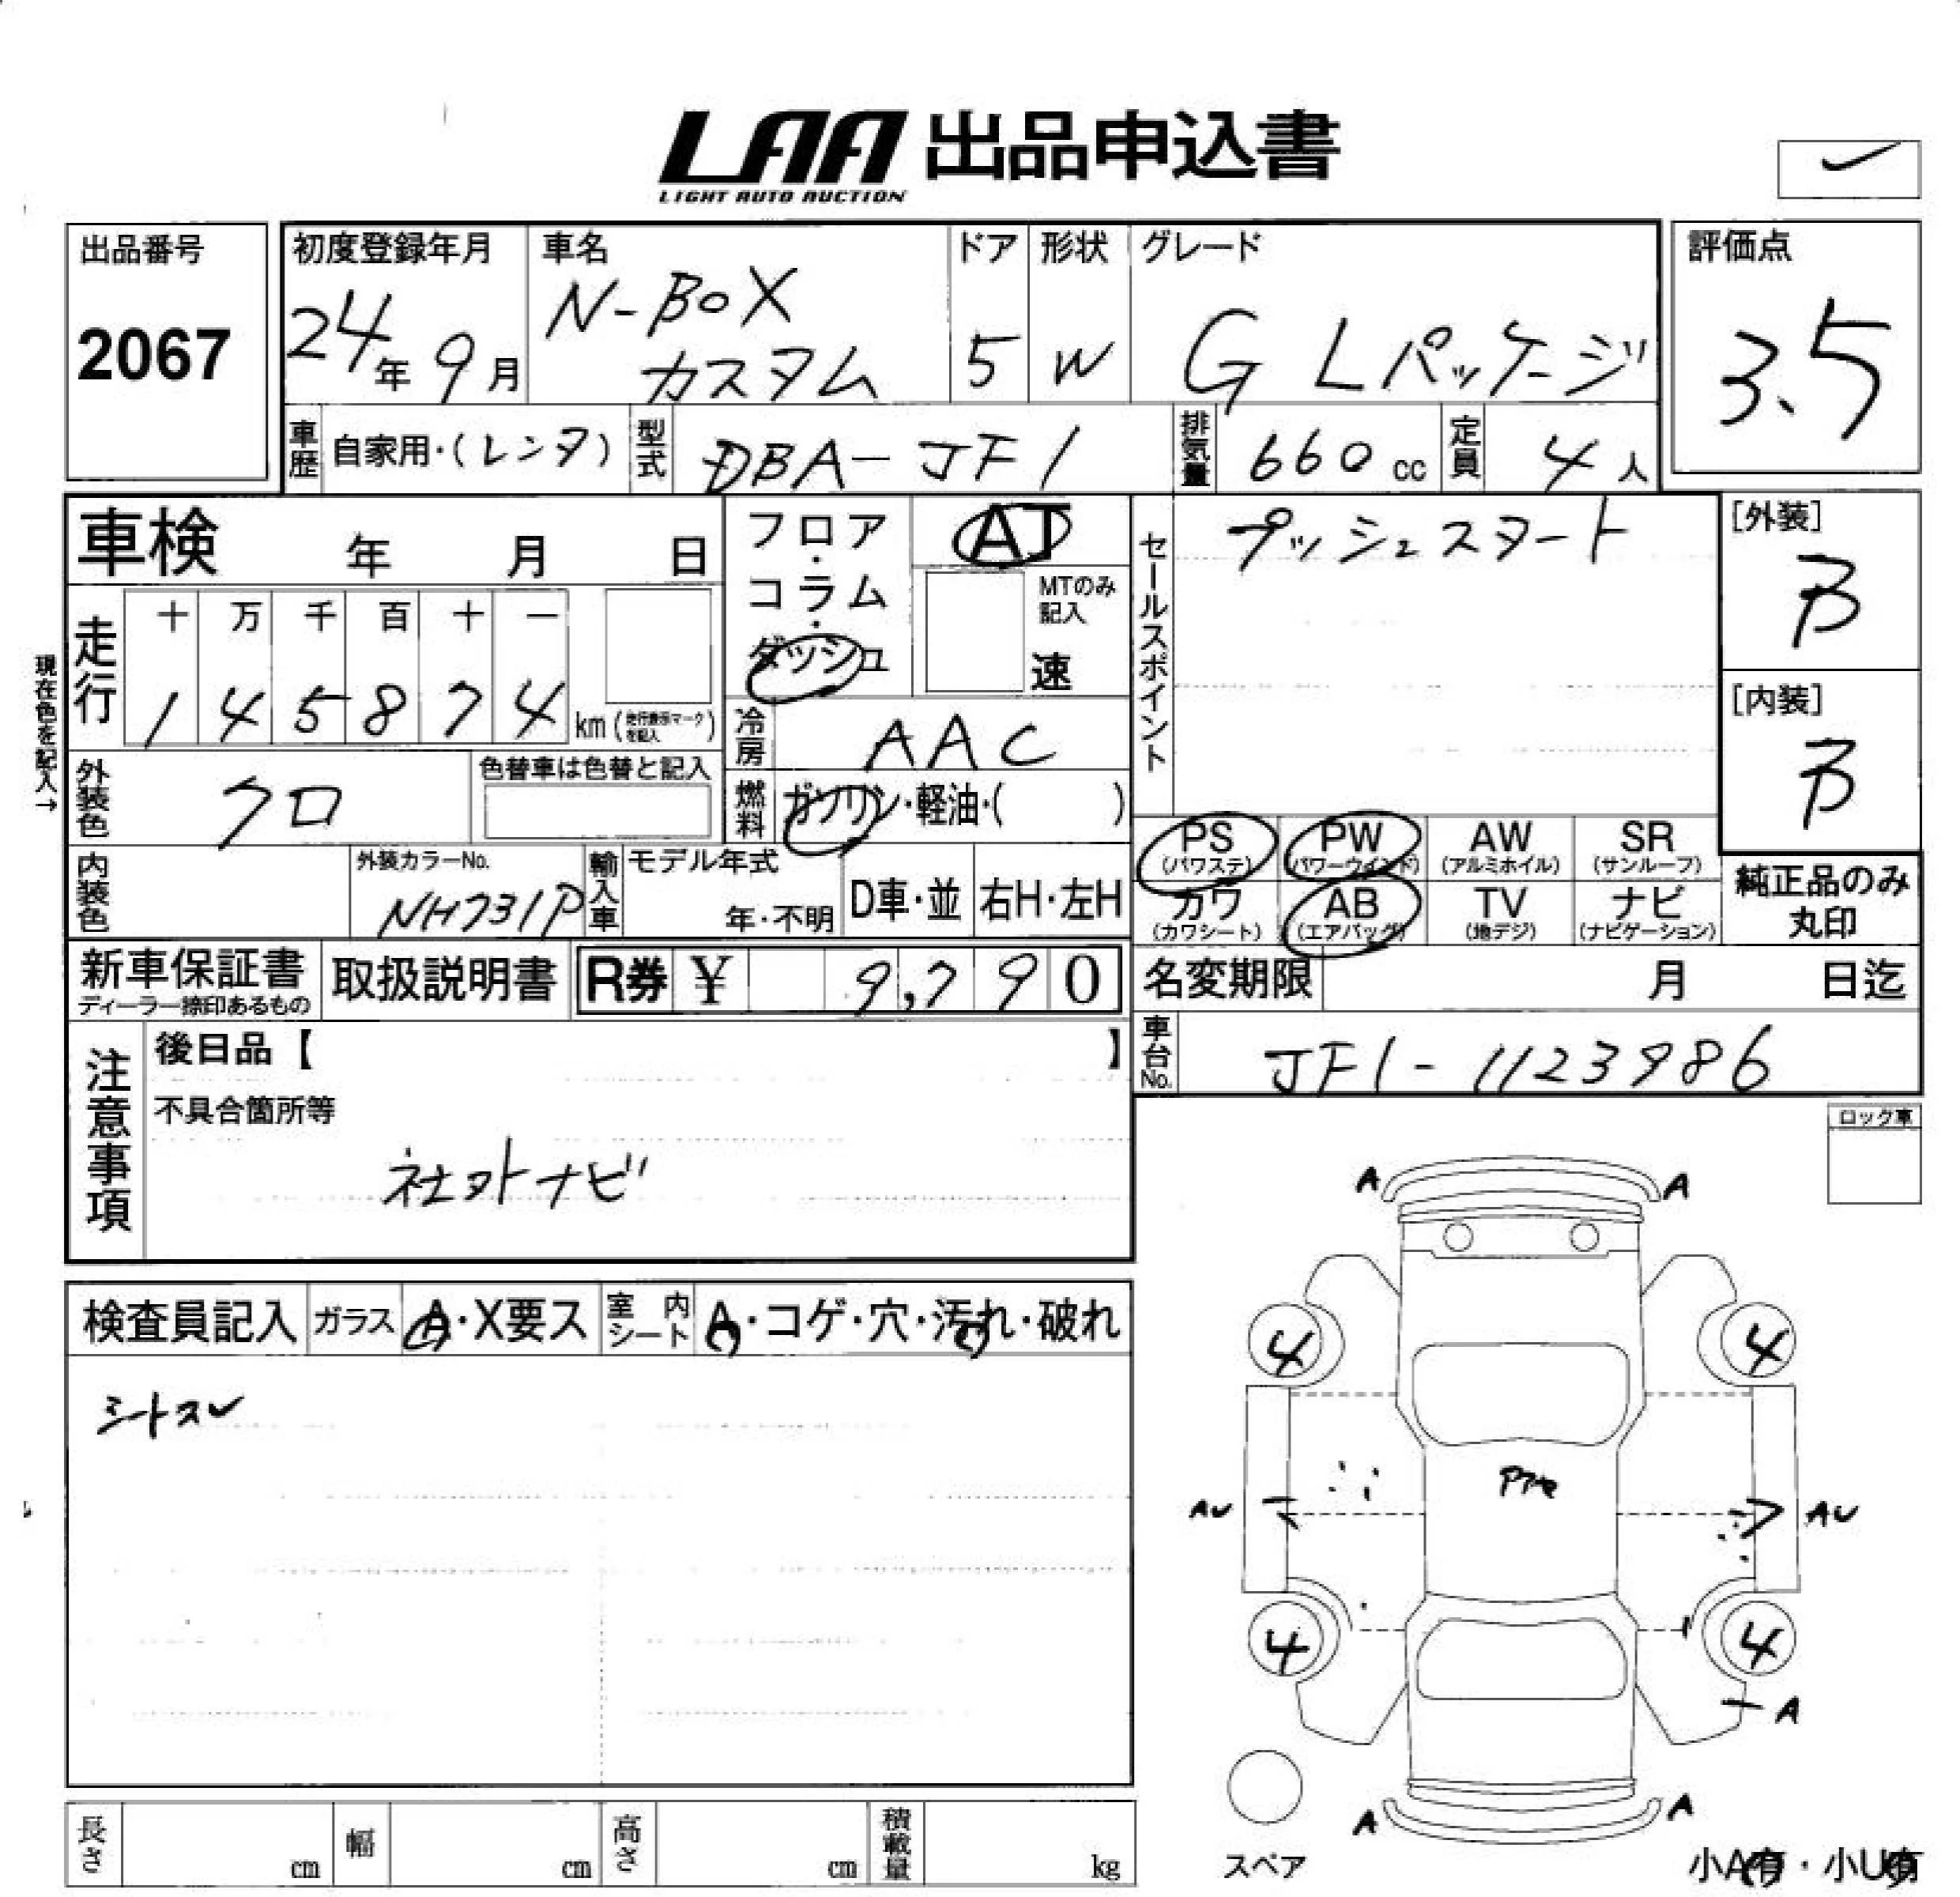 LAA 出品申込書
LIGHT AUTO AUCTION
出品番号
2067
初度登録年月
24年 9月
車名
N-BOX
カスタム
ドア
5
形状
W
グレード
G Lパッケージ
評価点
3.5
車歴
自家用・(レンタ)
型式
DBA-JF1
排気量
660 cc
定員
4 人
車検 年 月 日
現在色を記入→
走行
十 万 千 百 十 一
1 4 5 8 7 4 km (走行表示マークを記入)
フロア・
コラム・
ダッシュ
AT
MTのみ
記入
速
冷房
AAC
燃料
ガソリン・軽油・( )
セールスポイント
プッシュスタート
[外装]
B
[内装]
B
外装色
クロ
色替車は色替と記入
内装色
外装カラーNo.
NH731P
輸入車
モデル年式
年・不明
D車・並
右H・左H
PS
(パワステ)
PW
(パワーウインド)
AW
(アルミホイル)
SR
(サンルーフ)
カワ
(カワシート)
AB
(エアバッグ)
TV
(地デジ)
ナビ
(ナビゲーション)
純正品のみ
丸印
新車保証書
ディーラー捺印あるもの
取扱説明書
R券 ¥ 9,790
名変期限 月 日迄
車台No.
JF1-1123986
注意事項
後日品【 】
不具合箇所等
社外ナビ
ロック車
検査員記入
ガラス
A・X要ス
室内
シート
A・コゲ・穴・汚れ・破れ
シートスレ
A A
4 4
AU AU
4 4
A
A A
スペア
小A有・小U有
長さ cm
幅 cm
高さ cm
積載量 kg